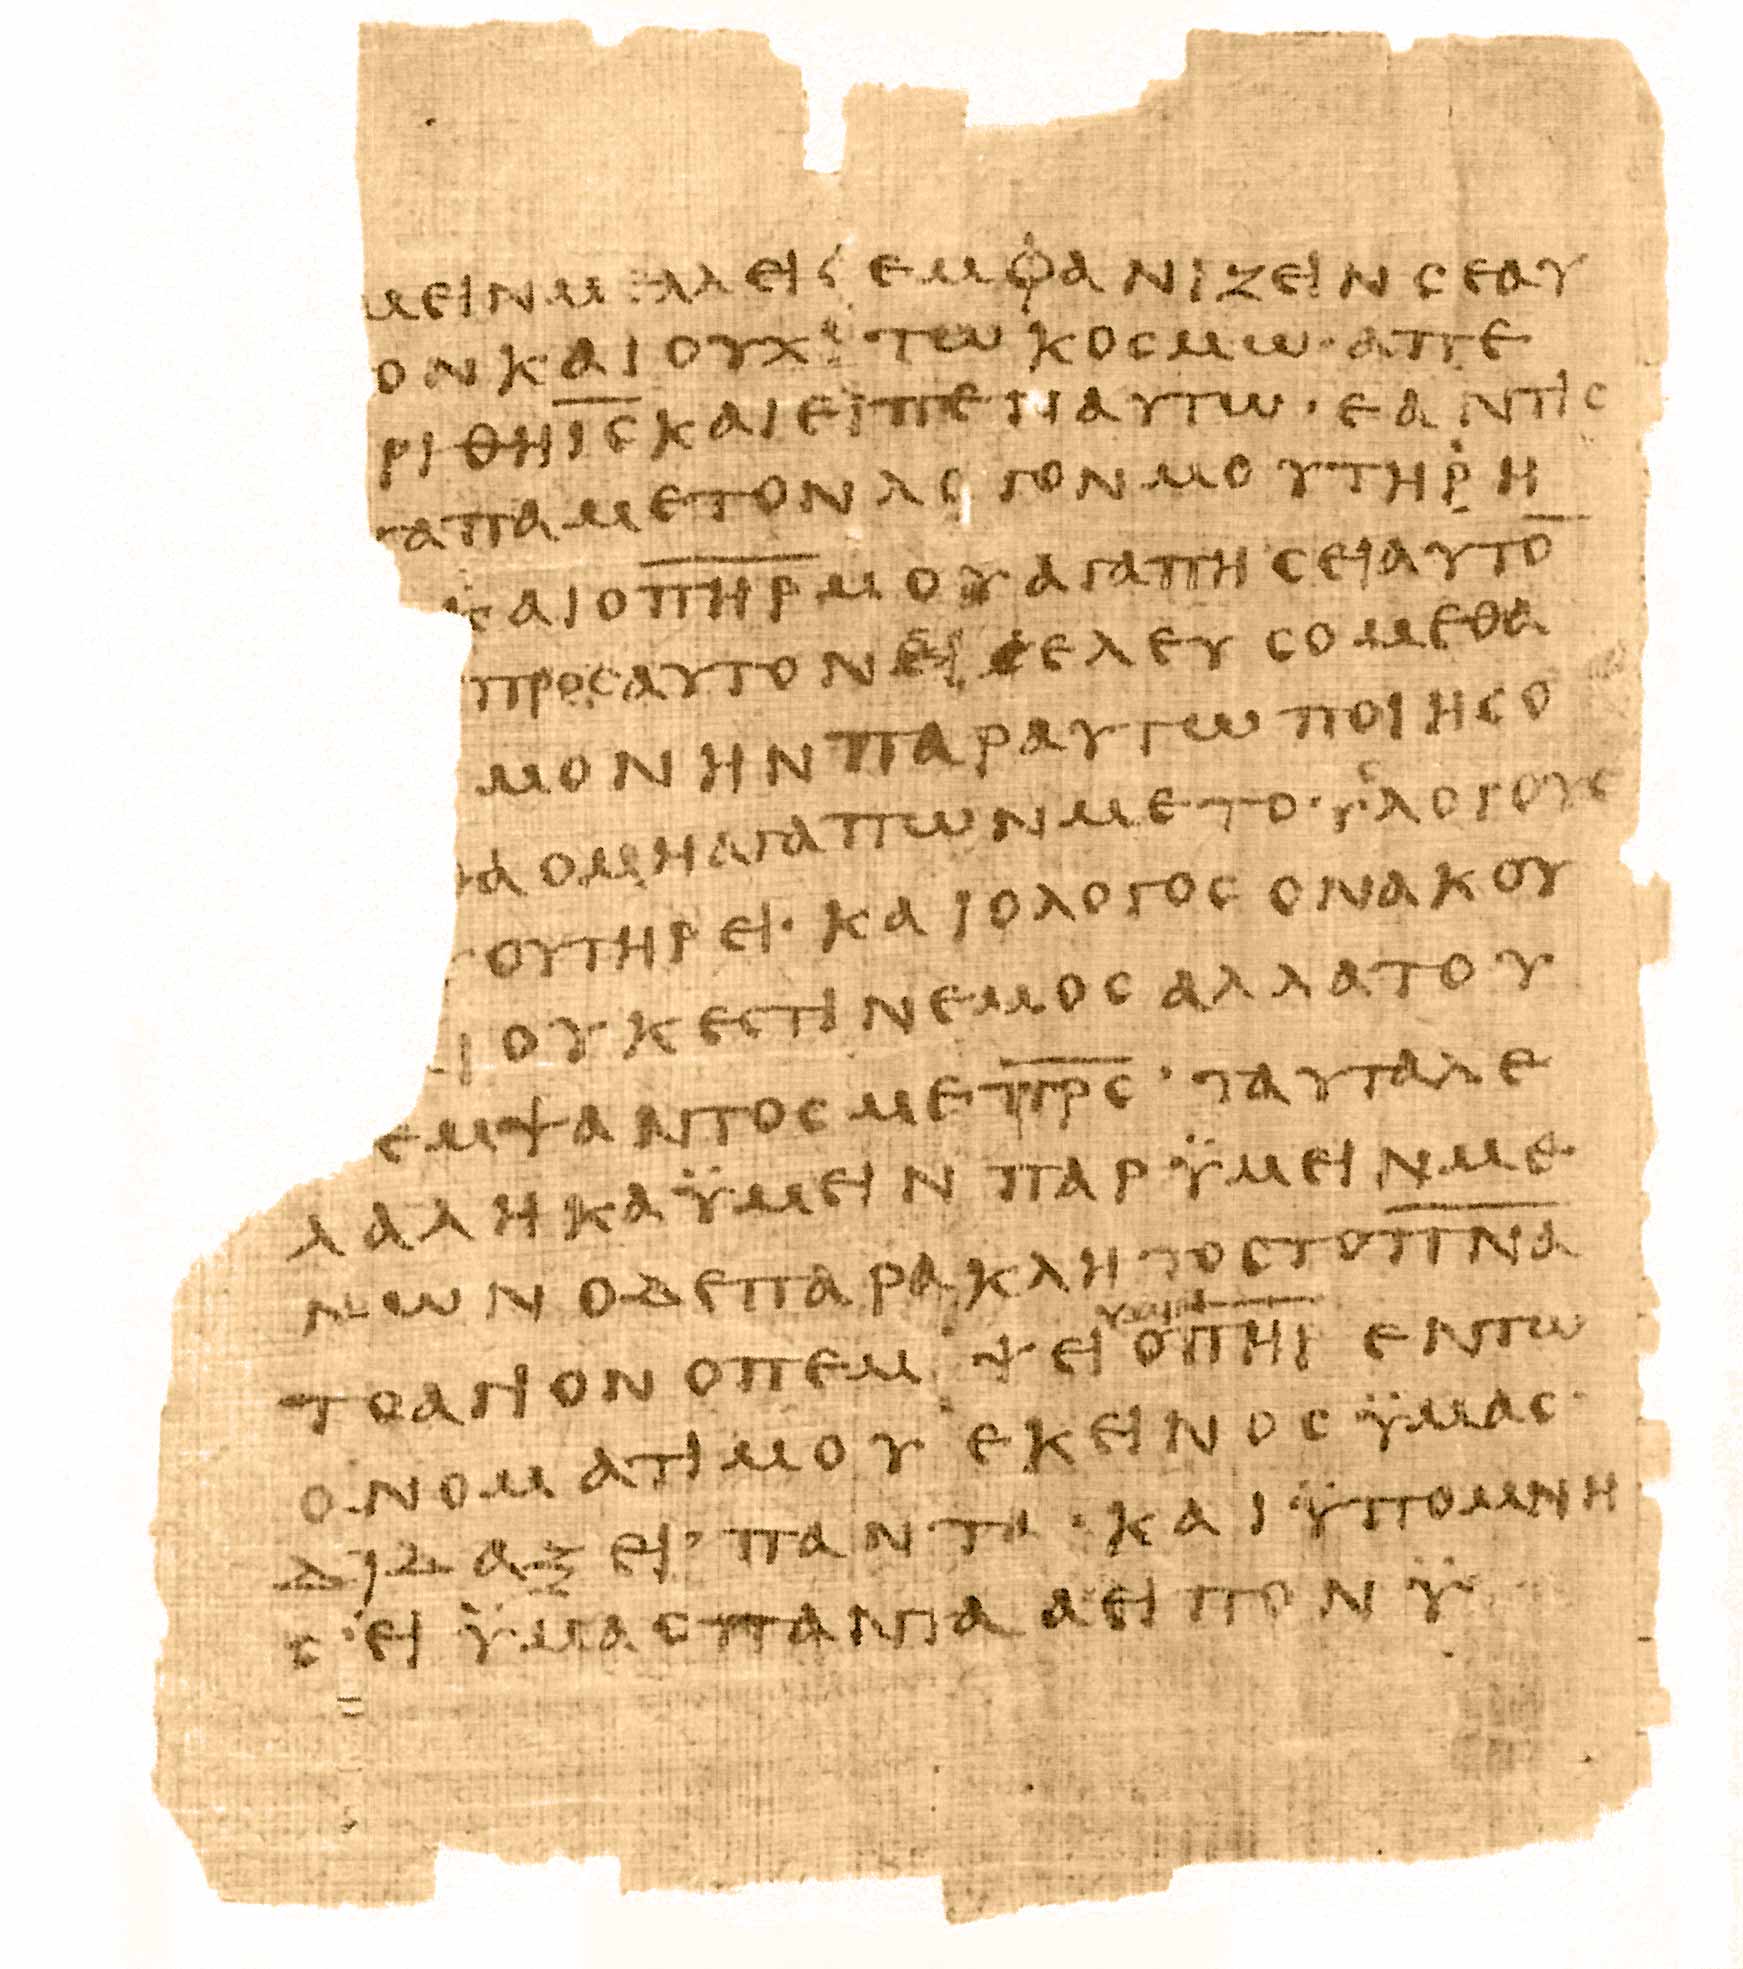 μεινμελλεισεμφανιζεινσεαυ
ονκαιουχιτωκοσμω·απε
ριθηι̅σ̅καιειπεναυτω·εαντισ
γαπαμετονλογονμουτηρη
καιοπ̅η̅ρ̅μουαγαπησειαυτο̅
προσαυτονελευσομεθα
μονηνπαραυτωποιησο
θαομηαγαπωνμετουσλογουσ
μουτηρει·καιολογοσονακου
ιουκεστινεμοσαλλατου
εμψαντοσμεπ̅ρ̅σ̅·ταυταλε
λαληκαϋμεινπαρϋμεινμε·
νωνοδεπαρακλητοστοπ̅ν̅α̅
τοαγιονοπεμψειυμινοπ̅η̅ρ̅εντω
ονοματιμουεκεινοσϋμασ·
διδαξει·παντα·καιϋπομνη
σειϋμασπαντααειπονϋ